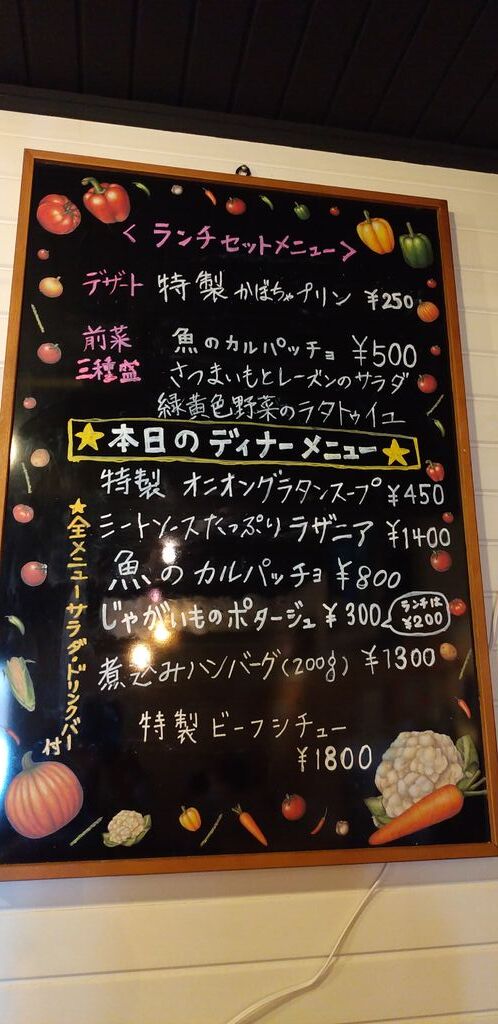 ＜ランチセットメニュー＞
デザート 特製かぼちゃプリン ¥250
前菜 魚のカルパッチョ ¥500
三種盛 さつまいもとレーズンのサラダ
緑黄色野菜のラタトゥイユ
★本日のディナーメニュー★
特製 オニオングラタンスープ ¥450
ミートソースたっぷりラザニア ¥1400
魚のカルパッチョ ¥800
じゃがいものポタージュ ¥300
ランチは
¥200
煮込みハンバーグ(200g) ¥1300
特製ビーフシチュー
¥1800
★全メニューサラダ・ドリンクバー付